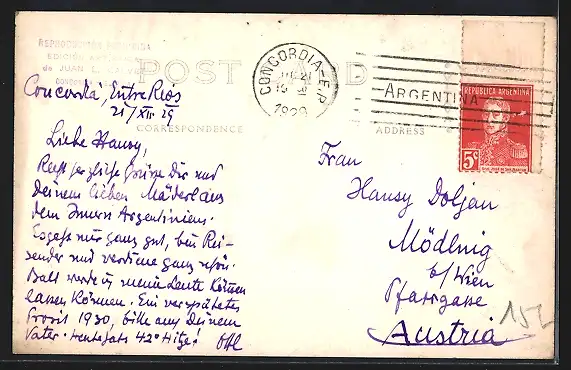 REPRODUCCION PROHIBIDA
EDICION
de JUAN L.
POST CARD
CORRESPONDENCE
ADDRESS
CONCORDIA-E.R.
21
1929
ARGENTINA
REPUBLICA ARGENTINA
5c
Concordia, Entre Rios
21/XII.29
Liebe Hansy,
Recht herzliche Grüsse Dir und
Deinem lieben Mäderl aus
dem Innern Argentiniens.
Es geht mir ganz gut, bin Rei-
sender und verdiene ganz schön.
Bald werde ich meine Leute kommen
lassen können. Ein verspätetes
Prosit 1930, bitte auch Deinem
Vater. Heute hats 42° Hitze!
Frau
Hansy Doljan
Mödling
b/Wien
Pfarrgasse
Austria